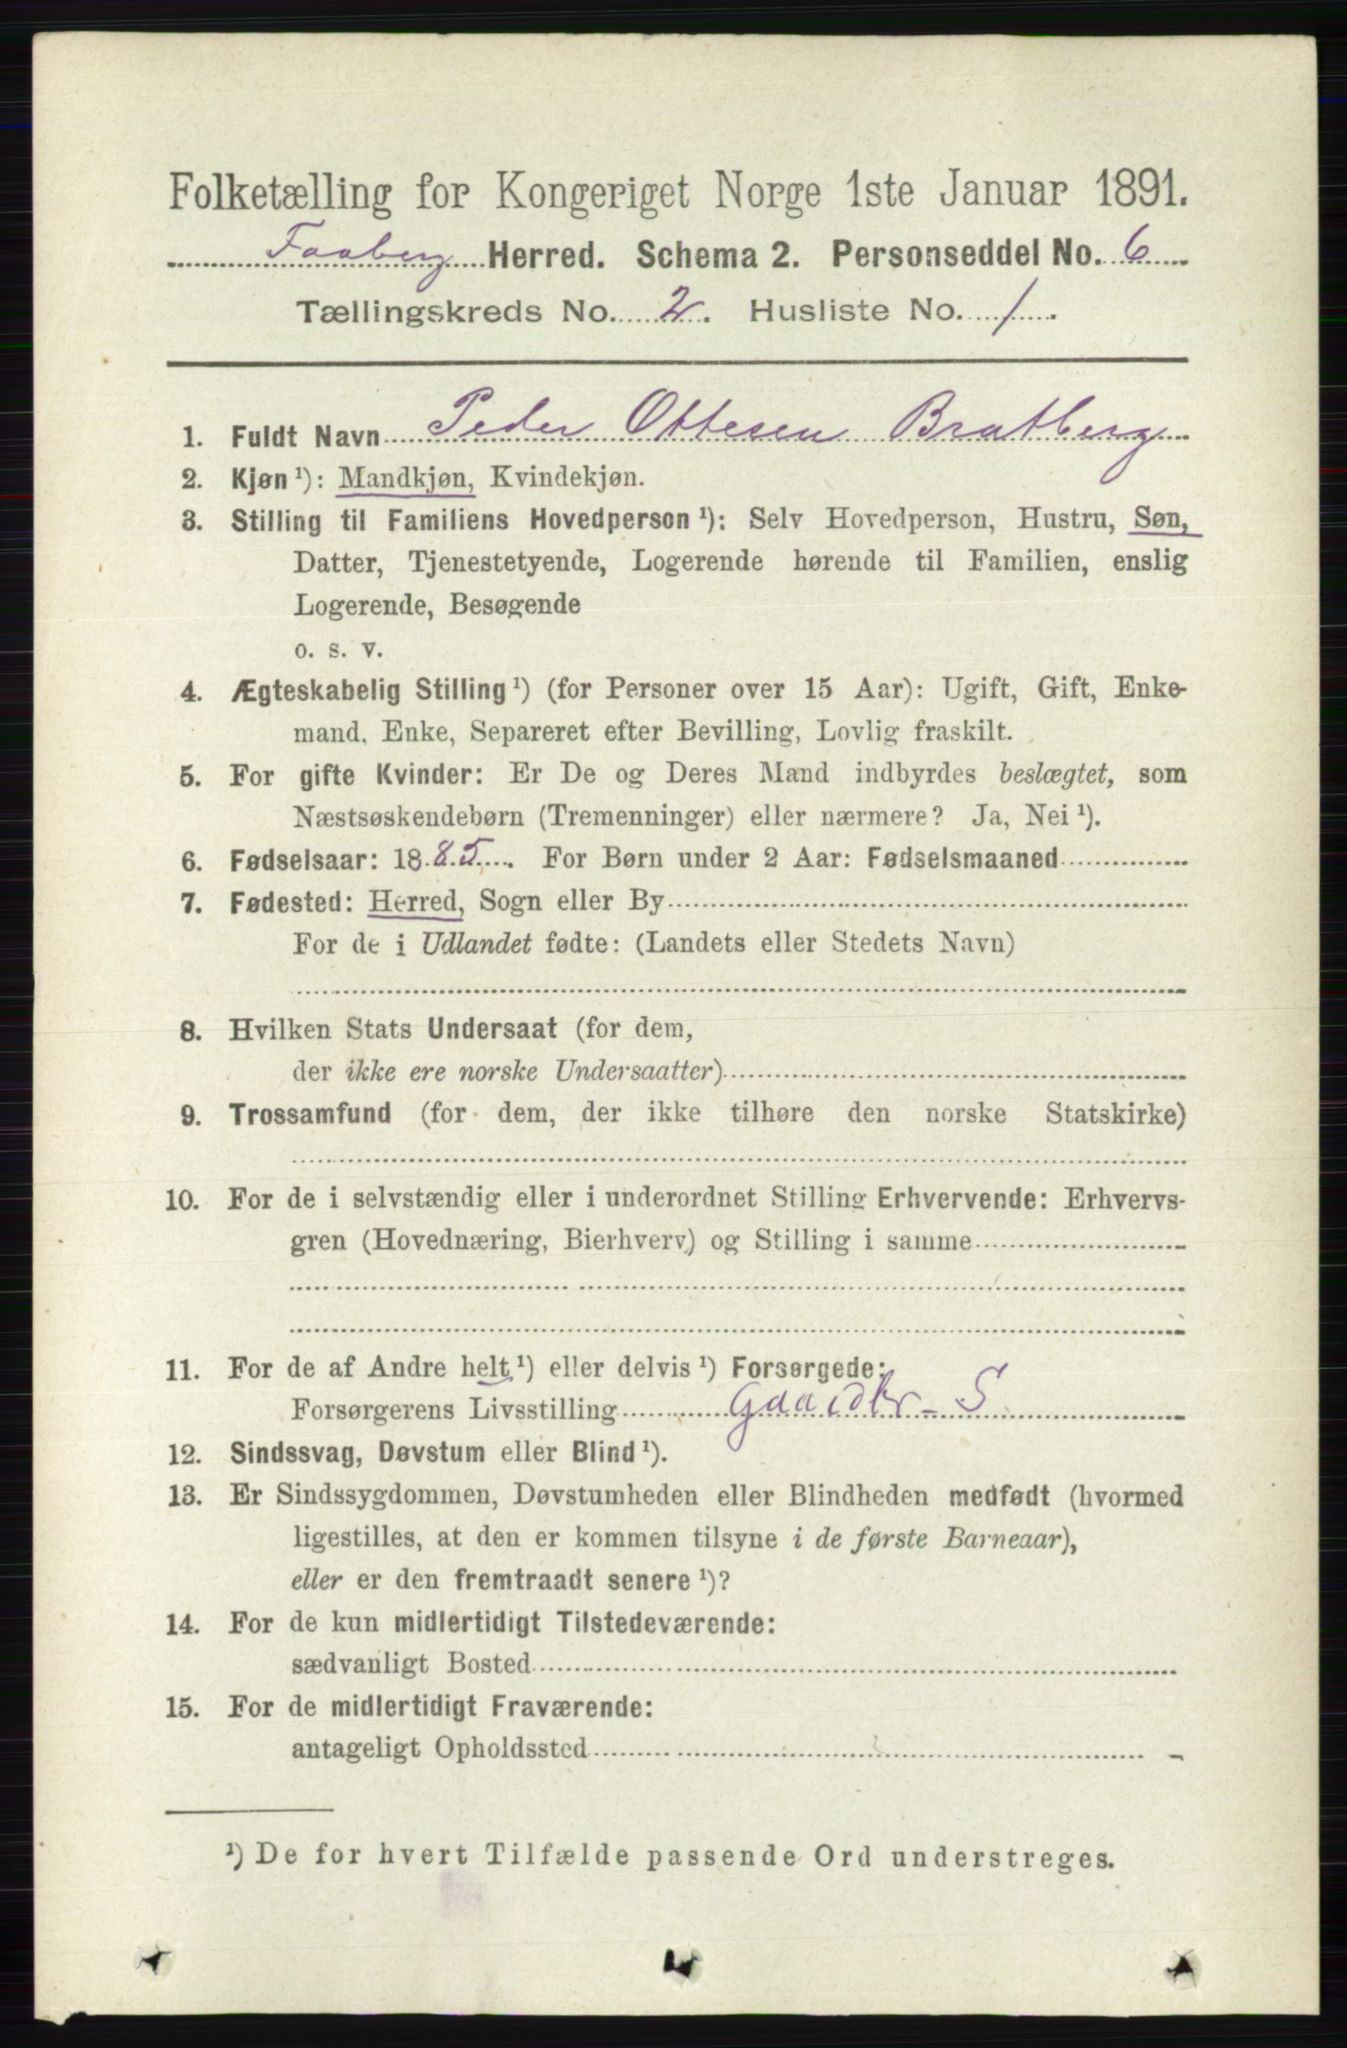 Folketælling for Kongeriget Norge 1ste Januar 1891.
Faaberg Herred. Schema 2. Personseddel No. 6
Tællingskreds No. 2. Husliste No. 1.
1. Fuldt Navn Peder Ottesen Bratberg
2. Kjøn ¹): Mandkjøn, Kvindekjøn.
3. Stilling til Familiens Hovedperson ¹): Selv Hovedperson, Hustru, Søn,
Datter, Tjenestetyende, Logerende hørende til Familien, enslig
Logerende, Besøgende
o. s. v.
4. Ægteskabelig Stilling ¹) (for Personer over 15 Aar): Ugift, Gift, Enke-
mand, Enke, Separeret efter Bevilling, Lovlig fraskilt.
5. For gifte Kvinder: Er De og Deres Mand indbyrdes beslægtet, som
Næstsøskendebørn (Tremenninger) eller nærmere? Ja, Nei ¹).
6. Fødselsaar: 1885. For Børn under 2 Aar: Fødselsmaaned
7. Fødested: Herred, Sogn eller By
For de i Udlandet fødte: (Landets eller Stedets Navn)
8. Hvilken Stats Undersaat (for dem,
der ikke ere norske Undersaatter)
9. Trossamfund (for dem, der ikke tilhøre den norske Statskirke)
10. For de i selvstændig eller i underordnet Stilling Erhvervende: Erhvervs-
gren (Hovednæring, Bierhverv) og Stilling i samme
11. For de af Andre helt ¹) eller delvis ¹) Forsørgede:
Forsørgerens Livsstilling Gaardbr - S
12. Sindssvag, Døvstum eller Blind ¹).
13. Er Sindssygdommen, Døvstumheden eller Blindheden medfødt (hvormed
ligestilles, at den er kommen tilsyne i de første Barneaar),
eller er den fremtraadt senere ¹)?
14. For de kun midlertidigt Tilstedeværende:
sædvanligt Bosted
15. For de midlertidigt Fraværende:
antageligt Opholdssted
¹) De for hvert Tilfælde passende Ord understreges.